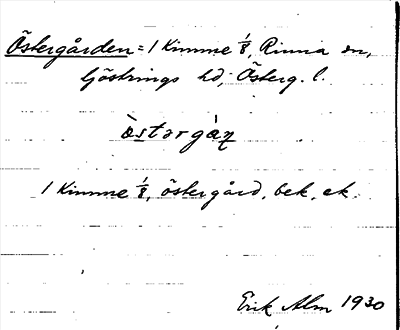 Östergården = 1 Kimme 1/8, Rinna sn,
Göstrings hd, Österg. l.
òstərgàɳ
1 Kimme 1/8, östergård, bek. ek.
Erik Alm 1930